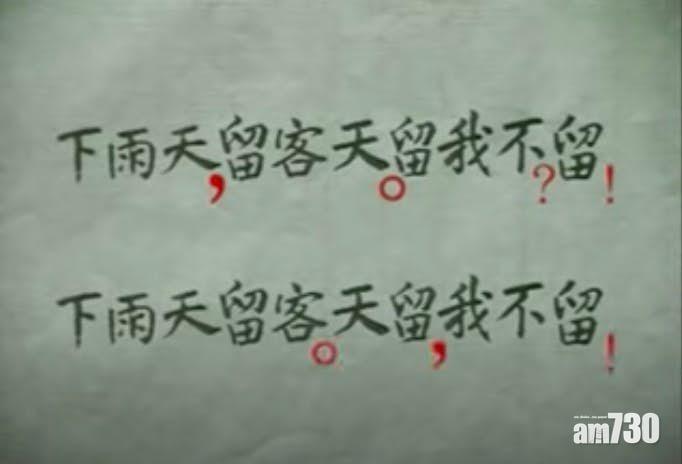 下雨天，留客天。留我不？留！
下雨天留客。天留，我不留！
am730